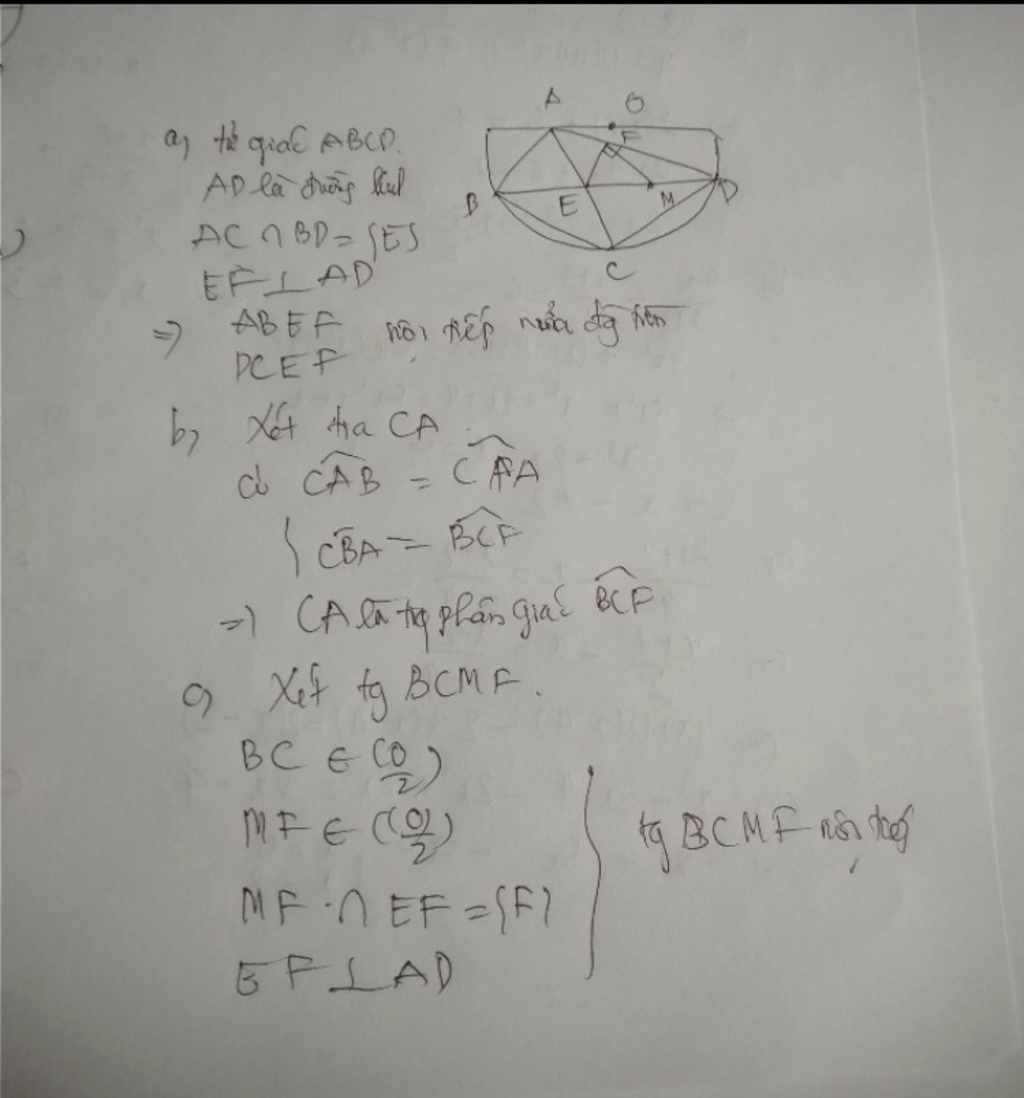 A O
F
B E M D
C
a, tứ giác ABCD.
AD là đường kính
AC ∩ BD = {E}
EF ⊥ AD
=> ABEF nội tiếp nửa đg tròn
DCEF
b, Xét tia CA
có CAB = CFA
{ CBA = BCF
=> CA là tia phân giác BCF
c, Xét tg BCMF.
BC ∈ (O/2)
MF ∈ (O/2)
MF ∩ EF = {F}
EF ⊥ AD
tg BCMF nội tiếp